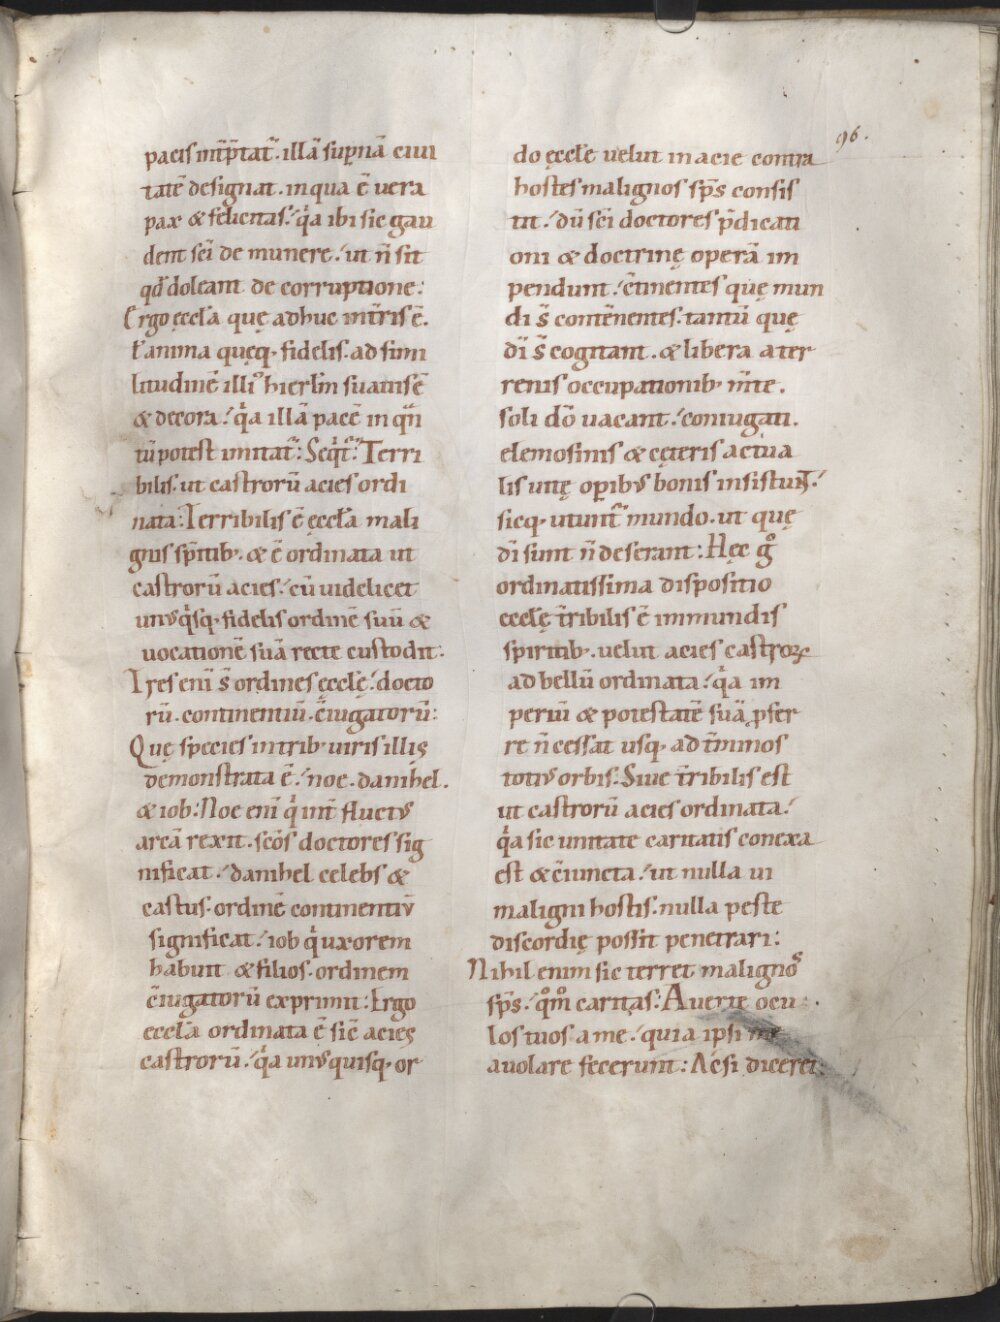 96.
pacis int̄p̄tat᷑. illā sup̱nā ciui
tatē designat. in qua ē uera
pax & felicitas. qͥa ibi sic gau
dent sc̄i de munere. ut n̄ sit
qd̄ doleant de corruptione:
Ergo ęccl̄a quę adhuc int̄ris ē.
ł anima quęq; fidelis. ad simi
litudinē illiꝰ hierl̄m suauis ē
& decora. qͥa illā pacē in qͣn
tū potest imitat᷑: Seqͥt᷑: Terri
bilis. ut castrorū acies ordi
nata: Terribilis ē ęccl̄a mali
gnis sp̄itib;. & ē ordinata ut
castrorū acies. cū uidelicet
unꝰqͥsq; fidelis ordinē suū &
uocationē suā recte custodit:
Tres eni s̄ ordines ęccl̄ę. docto
rū. continentiū. c̄iugatorū:
Quę species in trib; uiris illis
demonstrata ē. noe. danihel.
& iob: Noe enī qͥ int̄ fluctꝰ
arcā rexit. sc̄os doctores sig
nificat. danihel celebs &
castus. ordinē continentiū
significat. iob qͥ uxorem
habuit & filios. ordinem
c̄iugatorū exprimit: Ergo
eccl̄a ordinata ē sic̄ acies
castrorū. qͥa unꝰquisq; or
do ęccl̄ę uelut in acie contra
hostes malignos sp̄s consis
tit. dū sc̄i doctores p̄dicati
oni & doctrinę operā im
pendunt. c̄tinentes quę mun
di s̄ contēnentes. tantū quę
dī s̄ cogitant. & libera a ter
renis occupationib; m̄te.
soli dō uacant. coniugati.
elemosinis & cęteris actiua
lis uitę op̱ibꝰ bonis insistunt.
sicq; utunt᷑ mundo. ut quę
dī sunt n̄ deserant: Hęc gͦ
ordinatissima dispositio
eccl̄ę t̄ribilis ē inmundis
spiritib;. uelut acies castroꝝ
ad bellū ordinata. qͥa im
periū & potestatē suā ꝓfer
re n̄ cessat usq; ad t̄minos
totiꝰ orbis: Siue t̄ribilis est
ut castrorū acies ordinata.
qͥa sic unitate caritatis conexa
est & c̄iuncta. ut nulla ui
maligni hostis. nulla peste
discordię possit penetrari:
Nihil enim sic terret malignoˢ
sp̄s. qͦmͦ caritas: Auerte ocu
los tuos a me. quia ipsi me
auolare fecerunt: Ac si diceret.